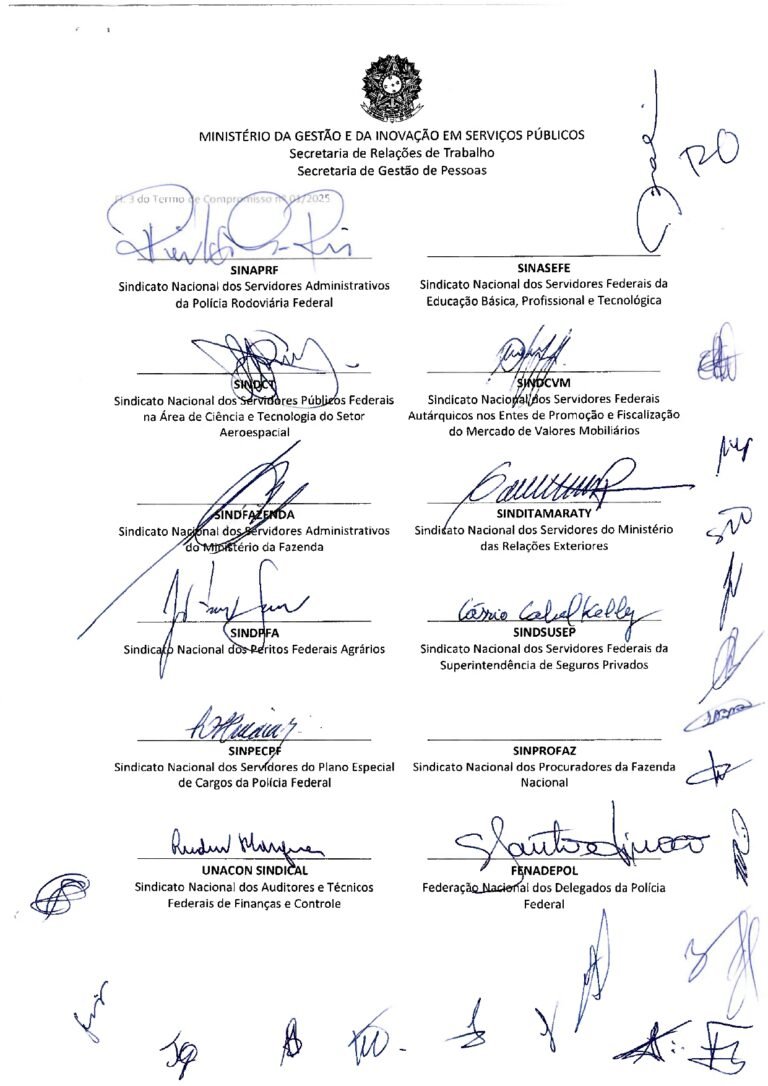 MINISTÉRIO DA GESTÃO E DA INOVAÇÃO EM SERVIÇOS PÚBLICOS
Secretaria de Relações de Trabalho
Secretaria de Gestão de Pessoas
Fl. 3 do Termo de Compromisso nº 01/2025
SINAPRF
Sindicato Nacional dos Servidores Administrativos
da Polícia Rodoviária Federal
SINASEFE
Sindicato Nacional dos Servidores Federais da
Educação Básica, Profissional e Tecnológica
SINDCT
Sindicato Nacional dos Servidores Públicos Federais
na Área de Ciência e Tecnologia do Setor
Aeroespacial
SINDCVM
Sindicato Nacional dos Servidores Federais
Autárquicos nos Entes de Promoção e Fiscalização
do Mercado de Valores Mobiliários
SINDFAZENDA
Sindicato Nacional dos Servidores Administrativos
do Ministério da Fazenda
SINDITAMARATY
Sindicato Nacional dos Servidores do Ministério
das Relações Exteriores
SINDPFA
Sindicato Nacional dos Peritos Federais Agrários
Cássio Cabral Kelly
SINDSUSEP
Sindicato Nacional dos Servidores Federais da
Superintendência de Seguros Privados
SINPECPF
Sindicato Nacional dos Servidores do Plano Especial
de Cargos da Polícia Federal
SINPROFAZ
Sindicato Nacional dos Procuradores da Fazenda
Nacional
UNACON SINDICAL
Sindicato Nacional dos Auditores e Técnicos
Federais de Finanças e Controle
FENADEPOL
Federação Nacional dos Delegados da Polícia
Federal